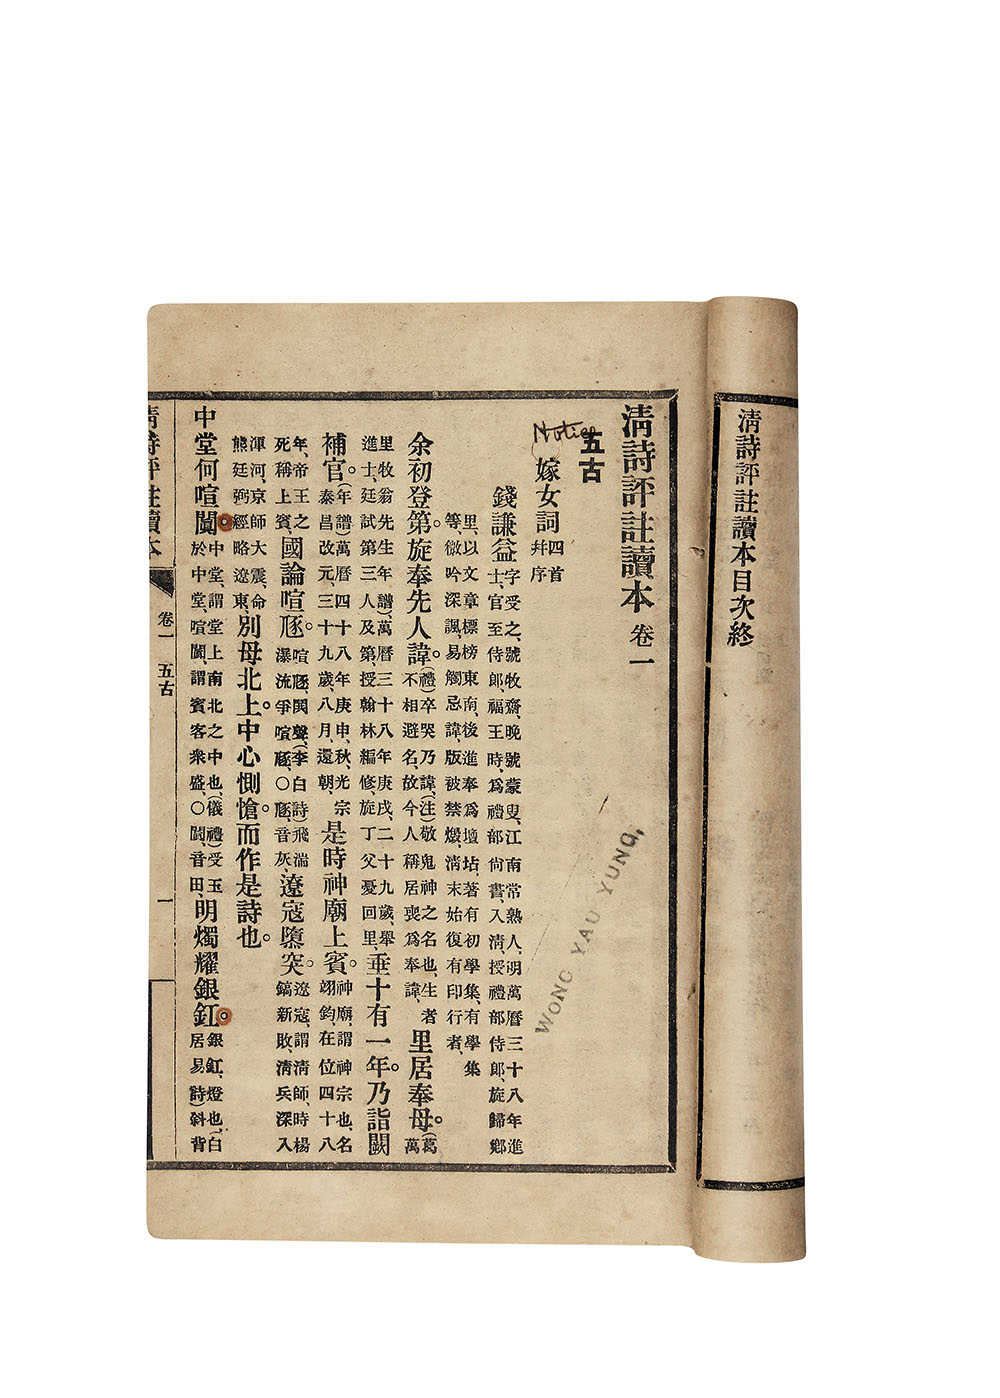 清詩評註讀本目次終
清詩評註讀本 卷一
五古
Notice
嫁女詞四首并序
錢謙益 字受之、號牧齋、晚號蒙叟、江南常熟人、明萬曆三十八年進士、官至侍郎、福王時、爲禮部尚書、入淸授禮部侍郎、旋歸鄉
里、以文章標榜東南、後進奉爲壇坫、著有初學集、有學集等、微吟深諷、易觸忌諱、版被禁燬、淸末始復有印行者、
余初登第。旋奉先人諱。(禮)卒哭乃諱、(注)敬鬼神之名也、生者不相避名、故今人稱居喪爲奉諱、里居奉母。(葛萬
里牧翁先生年譜)萬曆三十八年庚戌、二十九歲、舉進士、廷試第三人及第、授翰林編修、旋丁父憂回里、垂十有一年。乃詣闕
補官。(年譜)萬曆四十八年庚申、秋、光宗泰昌改元、三十九歲、八月、還朝、是時神廟上賓。神廟、謂神宗也、名翊鈞、在位四十八
年、帝王之死稱上賓、國論喧豗。喧豗、鬨聲、(李白詩)飛湍瀑流爭喧豗、○豗、音灰、遼寇隳突。遼寇、謂淸師、時楊鎬新敗、淸兵深入
渾河、京師大震、命熊廷弼經略遼東、別母北上。中心惻愴。而作是詩也。
中堂何喧闐 中堂、謂堂上南北之中也、(儀禮)受玉於中堂、喧闐、謂賓客衆盛、○闐、音田、明燭耀銀釭 銀釭、燈也、(白居易詩)斜背
清詩評註讀本 卷一 五古 一
WONG YAU YUNG,